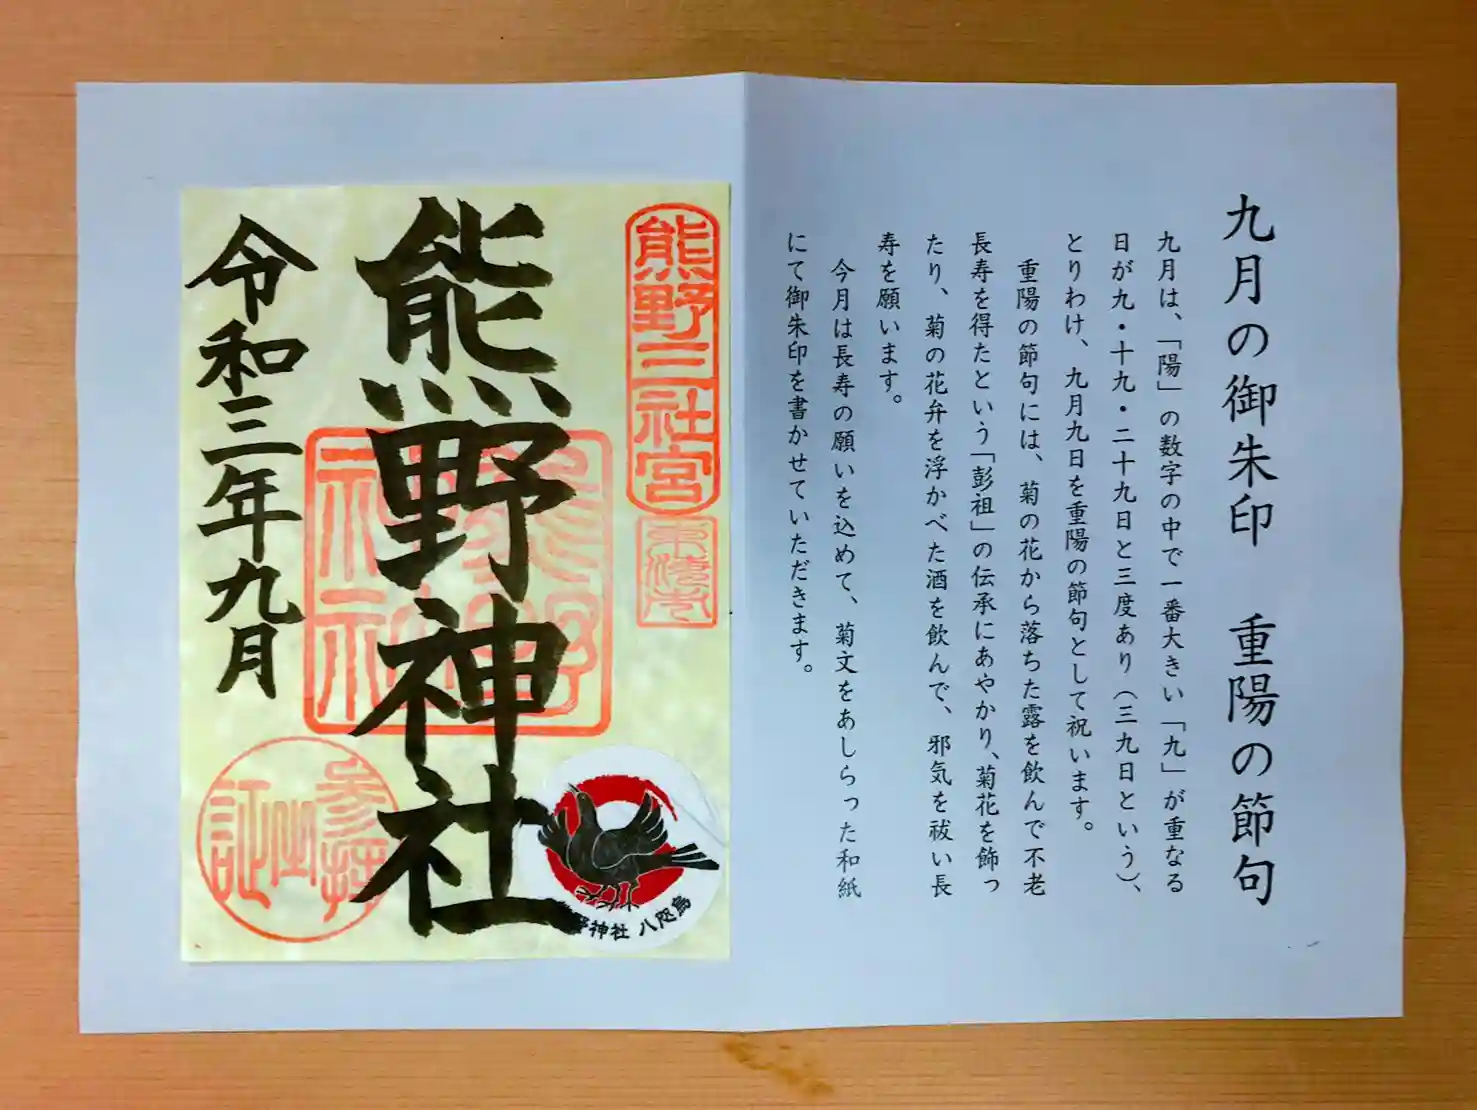 九月の御朱印　重陽の節句
九月は、「陽」の数字の中で一番大きい「九」が重なる
日が九・十九・二十九日と三度あり（三九日という）、
とりわけ、九月九日を重陽の節句として祝います。
重陽の節句には、菊の花から落ちた露を飲んで不老
長寿を得たという「彭祖」の伝承にあやかり、菊花を飾っ
たり、菊の花弁を浮かべた酒を飲んで、邪気を祓い長
寿を願います。
今月は長寿の願いを込めて、菊文をあしらった和紙
にて御朱印を書かせていただきます。
熊野三社宮
熊野神社
熊野
神社
令和三年九月
参拝
之
証
野神社 八咫烏